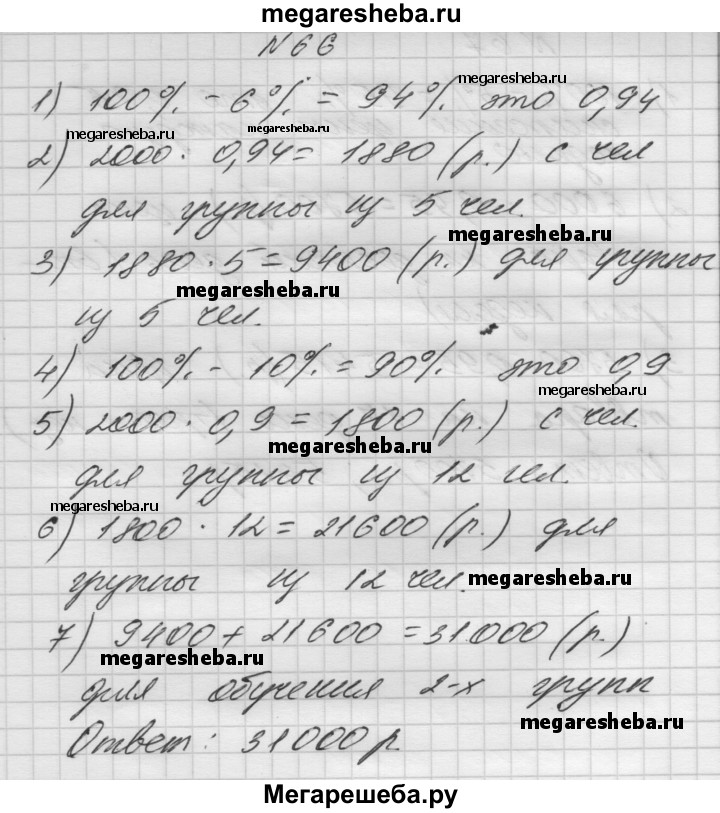 megaresheba.ru
N 66
megaresheba.ru
1) 100% - 6% = 94% это 0,94
megaresheba.ru
megaresheba.ru
2) 2000 · 0,94 = 1880 (р.) с чел
для группы из 5 чел.
megaresheba.ru
3) 1880 · 5 = 9400 (р.) для группы
megaresheba.ru
из 5 чел.
4) 100% - 10% = 90% это 0,9
megaresheba.ru
5) 2000 · 0,9 = 1800 (р.) с чел.
megaresheba.ru
для группы из 12 чел.
megaresheba.ru
6) 1800 · 12 = 21600 (р.) для
группы из 12 чел.
megaresheba.ru
7) 9400 + 21600 = 31000 (р.)
megaresheba.ru
для обучения 2-х групп
megaresheba.ru
Ответ: 31000 р.
Мегарешеба.ру